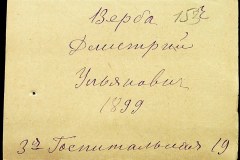 Верба 157
Дмитрий
Ульянович
1899
3я Госпитальная 19